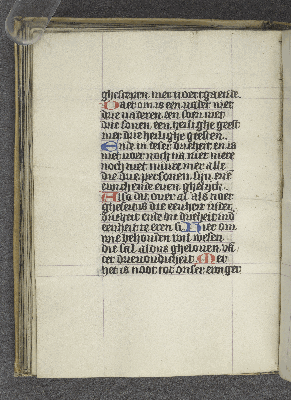 ghescreuen met woert gaende.
Daer om is een vader niet
drie vaderen een soen niet
drie sonen een heilighe geest
niet drie heilighe geesten.
Ende in deser drieheit en is
niet voer noch na niet meer
noch niet minre mer alle
die drie personen sijn ene
ewich ende even ghelijck.
Also dat over al als voer
gheseit is die eenheit in der
driheit ende die drieheit in d
eenheit te eren si Die om
wil behouden wil wesen
die sal aldus ghelouen va
der drieuoudicheit Mer
het is noot tot onser ewiger